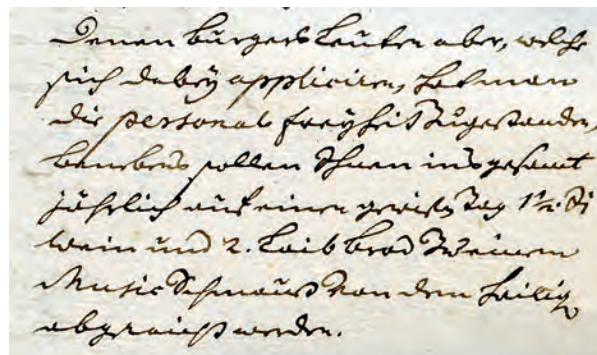 Denen burgers Leuten aber, welche
sich dabeÿ appliciren, hat man
die personal freÿheit Zugestanden,
benebens sollen Ihnen insgesamt
jährlich auf einen gewißen Tag 1½.
wein und 2. Laib brod Zu einem
Music Schmauß von dem heilig
abgereicht werden.